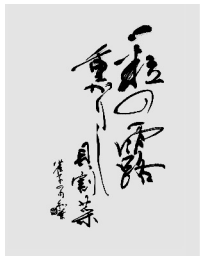 一粒の露
重かりし
貝割菜